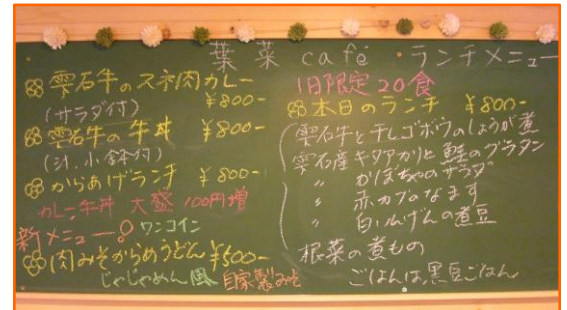 葉菜 café・ランチメニュー
雫石牛のスネ肉カレー
(サラダ付) ¥800-
雫石牛の牛丼 ¥800-
(汁、小鉢付)
からあげランチ ¥800-
カレー、牛丼 大盛 100円増
新メニュー! ワンコイン
肉みそからめうどん ¥500-
じゃじゃめん風 自家製みそ
1日限定20食
本日のランチ ¥800-
雫石牛と干しゴボウのしょうが煮
雫石産キタアカリと鮭のグラタン
〃 かぼちゃのサラダ
〃 赤カブのなます
〃 白いんげんの煮豆
根菜の煮もの
ごはんは、黒豆ごはん